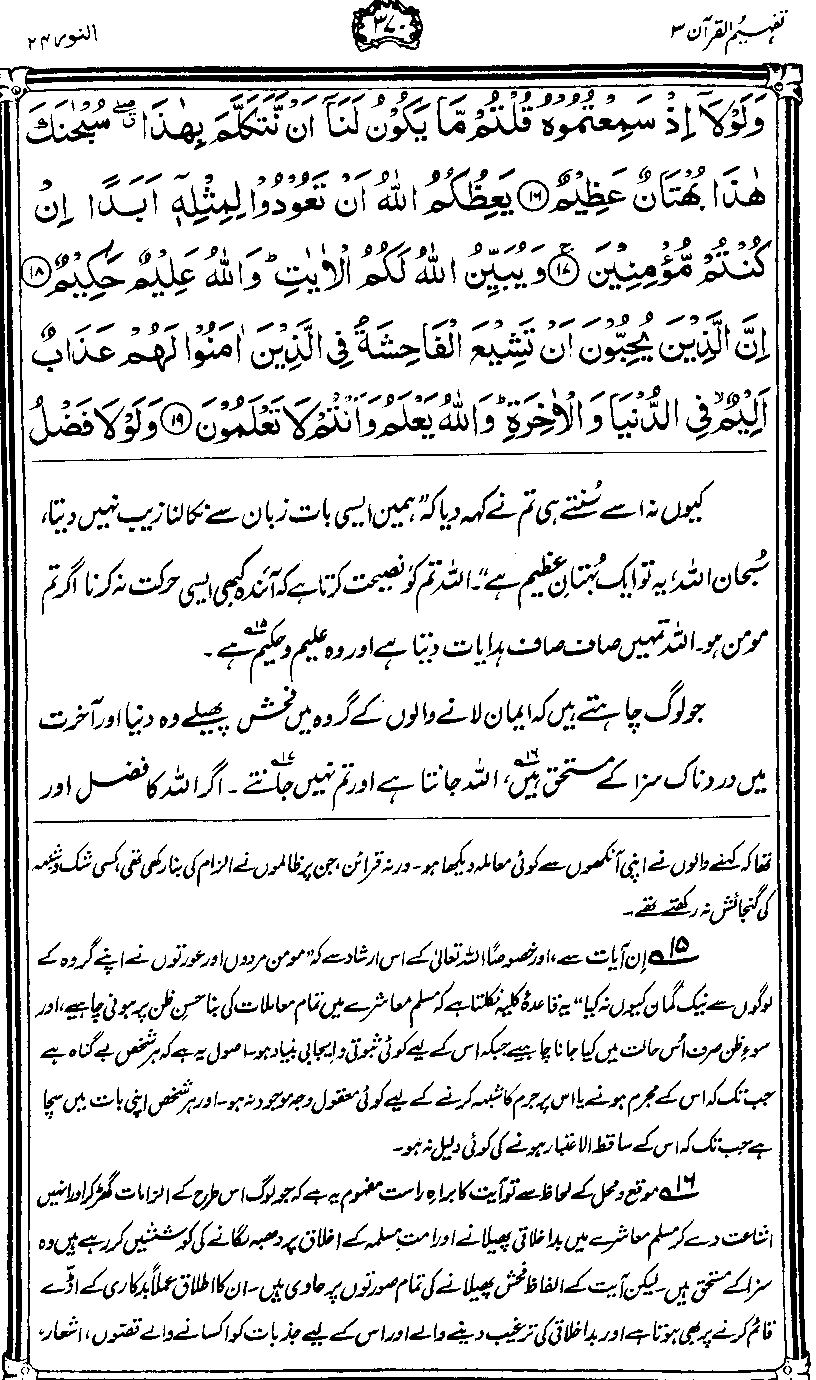 تفہیم القرآن ۳
۳۷۰
النور ۲۴
وَلَوْلَآ اِذْ سَمِعْتُمُوْهُ قُلْتُمْ مَّا يَكُوْنُ لَنَآ اَنْ نَّتَكَلَّمَ بِهٰذَا ۖ سُبْحٰنَكَ
هٰذَا بُهْتَانٌ عَظِيْمٌ ﴿۱۶﴾ يَعِظُكُمُ اللّٰهُ اَنْ تَعُوْدُوْا لِمِثْلِهٖٓ اَبَدًا اِنْ
كُنْتُمْ مُّؤْمِنِيْنَ ﴿۱۷﴾ وَيُبَيِّنُ اللّٰهُ لَكُمُ الْاٰيٰتِ ؕ وَاللّٰهُ عَلِيْمٌ حَكِيْمٌ ﴿۱۸﴾
اِنَّ الَّذِيْنَ يُحِبُّوْنَ اَنْ تَشِيْعَ الْفَاحِشَةُ فِي الَّذِيْنَ اٰمَنُوْا لَهُمْ عَذَابٌ
اَلِيْمٌ ۙ فِي الدُّنْيَا وَالْاٰخِرَةِ ؕ وَاللّٰهُ يَعْلَمُ وَاَنْتُمْ لَا تَعْلَمُوْنَ ﴿۱۹﴾ وَلَوْلَا فَضْلُ
کیوں نہ اسے سُنتے ہی تم نے کہہ دیا کہ ”ہمیں ایسی بات زبان سے نکالنا زیب نہیں دیتا،
سُبحان اللہ، یہ تو ایک بُہتانِ عظیم ہے“۔ اللہ تم کو نصیحت کرتا ہے کہ آئندہ کبھی ایسی حرکت نہ کرنا اگر تم
مومن ہو۔ اللہ تمہیں صاف صاف ہدایات دیتا ہے اور وہ علیم و حکیم ۱۵؎ ہے۔
جو لوگ چاہتے ہیں کہ ایمان لانے والوں کے گروہ میں فحش پھیلے وہ دنیا اور آخرت
میں دردناک سزا کے مستحق ہیں۱۶؎، اللہ جانتا ہے اور تم نہیں جانتے۱۷؎۔ اگر اللہ کا فضل اور
تھا کہ کہنے والوں نے اپنی آنکھوں سے کوئی معاملہ دیکھا ہو۔ ورنہ قرائن، جن پر ظالموں نے الزام کی بنا رکھی تھی، کسی شک و شبہہ
کی گنجائش نہ رکھتے تھے۔
۱۵؎ اِن آیات سے، اور خصوصاً اللہ تعالیٰ کے اس ارشاد سے کہ ”مومن مردوں اور عورتوں نے اپنے گروہ کے
لوگوں سے نیک گمان کیوں نہ کیا“ یہ قاعدۂ کلیہ نکلتا ہے کہ مسلم معاشرے میں تمام معاملات کی بنا حسنِ ظن پر ہونی چاہیے، اور
سوءِ ظن صرف اُس حالت میں کیا جانا چاہیے جبکہ اس کے لیے کوئی ثبوتی و ایجابی بنیاد ہو۔ اصول یہ ہے کہ ہر شخص بے گناہ ہے
جب تک کہ اس کے مجرم ہونے یا اس پر جرم کا شبہہ کرنے کے لیے کوئی معقول وجہ موجود نہ ہو۔ اور ہر شخص اپنی بات میں سچا
ہے جب تک کہ اس کے ساقط الاعتبار ہونے کی کوئی دلیل نہ ہو۔
۱۶؎ موقع و محل کے لحاظ سے تو آیت کا براہِ راست مفہوم یہ ہے کہ جو لوگ اس طرح کے الزامات گھڑ کر اور انہیں
اشاعت دے کر مسلم معاشرے میں بداخلاقی پھیلانے اور امتِ مسلمہ کے اخلاق پر دھبہ لگانے کی کوششیں کر رہے ہیں وہ
سزا کے مستحق ہیں۔ لیکن آیت کے الفاظ فحش پھیلانے کی تمام صورتوں پر حاوی ہیں۔ ان کا اطلاق عملاً بدکاری کے اڈے
قائم کرنے پر بھی ہوتا ہے اور بداخلاقی کی ترغیب دینے والے اور اس کے لیے جذبات کو اکسانے والے قصوں، اشعار،